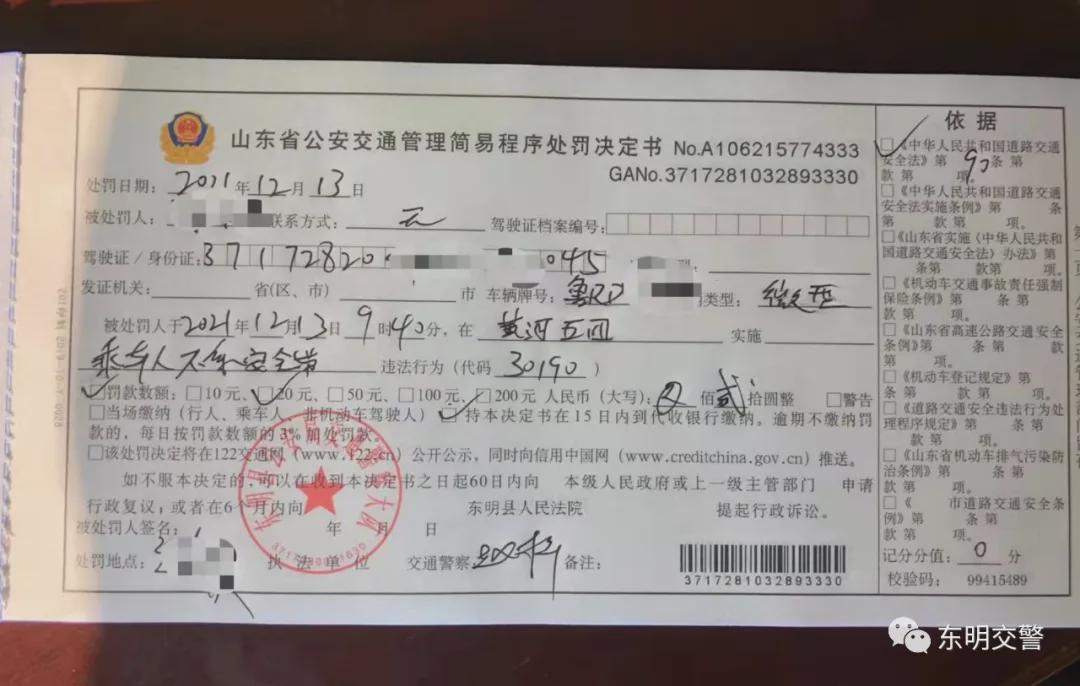 山东省公安交通管理简易程序处罚决定书 No.A106215774333
GANo.3717281032893330
处罚日期：2021年12月13日
被处罚人： 联系方式： 无 驾驶证档案编号：
驾驶证/身份证：37172820 045 型：
发证机关： 省(区、市) 市 车辆牌号：鲁 类型：微型
被处罚人于2021年12月13日9时40分，在 黄河五 实施
乘车人不系安全带 违法行为（代码 30190 ）
☑罚款数额：□10元、☑20元、□50元、□100元、□200元 人民币（大写）：又佰贰拾圆整 □警告
□当场缴纳（行人、乘车人、非机动车驾驶人）☑持本决定书在15日内到代收银行缴纳。逾期不缴纳罚
款的，每日按罚款数额的3%加处罚款。
□该处罚决定将在122交通网（www.122.cn）公开公示，同时向信用中国网（www.creditchina.gov.cn）推送。
如不服本决定的，可以在收到本决定书之日起60日内向 本级人民政府或上一级主管部门 申请
行政复议；或者在6个月内向 东明县人民法院 提起行政诉讼。
被处罚人签名： 年 月 日
处罚地点： 执法单位 交通警察 备注：
3717281032893330
依据
☑《中华人民共和国道路交通
安全法》第 90 条 第
款 第 项。
□《中华人民共和国道路交通
安全法实施条例》第 条
第 款 第 项。
□《山东省实施〈中华人民共和
国道路交通安全法〉办法》第
条第 款第 项。
□《机动车交通事故责任强制
保险条例》第 条 第
款 第 项。
□《山东省高速公路交通安全
条例》第 条 第 款
第 项。
□《机动车登记规定》第
条 第 款 第 项。
□《道路交通安全违法行为处
理程序规定》第 条 第
款 第 项。
□《山东省机动车排气污染防
治条例》第 条 第
款 第 项。
□《 市道路交通安全条
例》第 条 第
款 第 项。
记分分值： 0 分
校验码： 99415489
东明交警